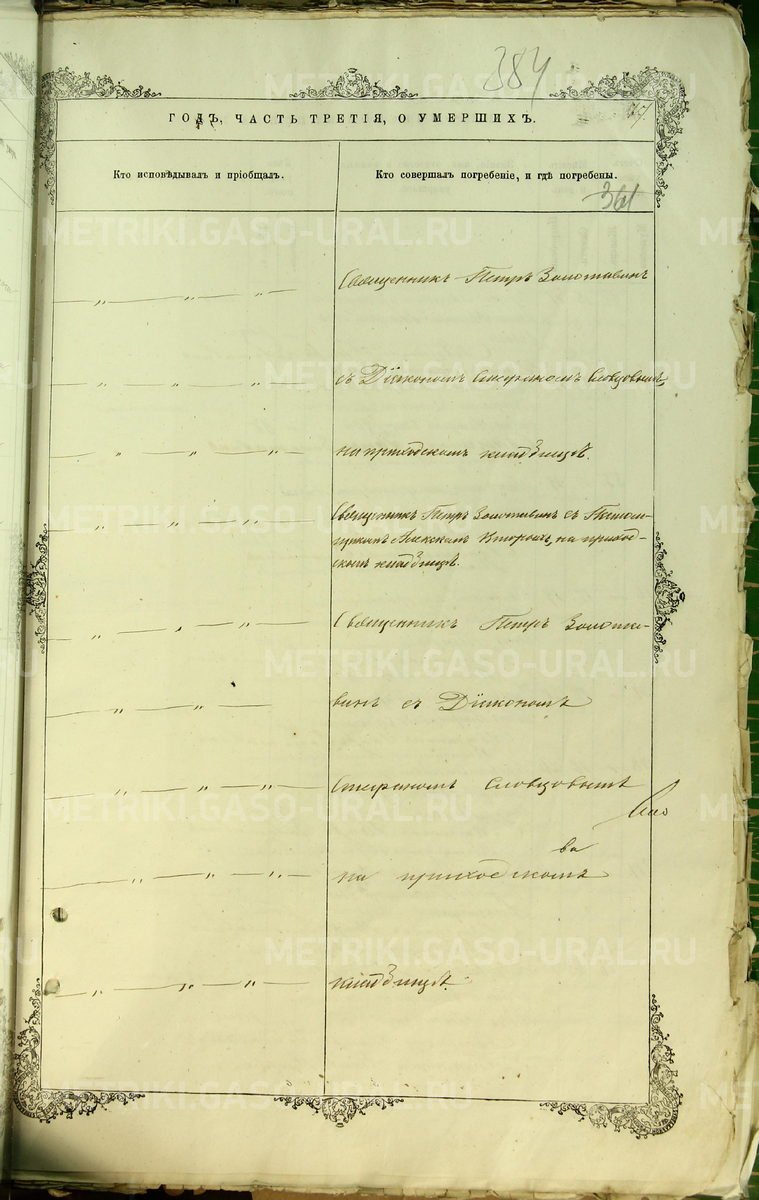 384
ГОДЪ, ЧАСТЬ ТРЕТІЯ, О УМЕРШИХЪ.
Кто исповѣдывалъ и пріобщалъ.
Кто совершалъ погребеніе, и гдѣ погребены.
361
Священникъ Петръ Золотавинъ
съ Діякономъ Стефаномъ Словцовымъ,
на приходскомъ кладбищѣ.
Священникъ Петръ Золотавинъ съ
на приход-
скомъ кладбищѣ.
Священникъ Петръ Золота-
винъ съ Діякономъ
Стефаномъ Словцовымъ
на приходскомъ
кладбищѣ.
METRIKI.GASO-URAL.RU